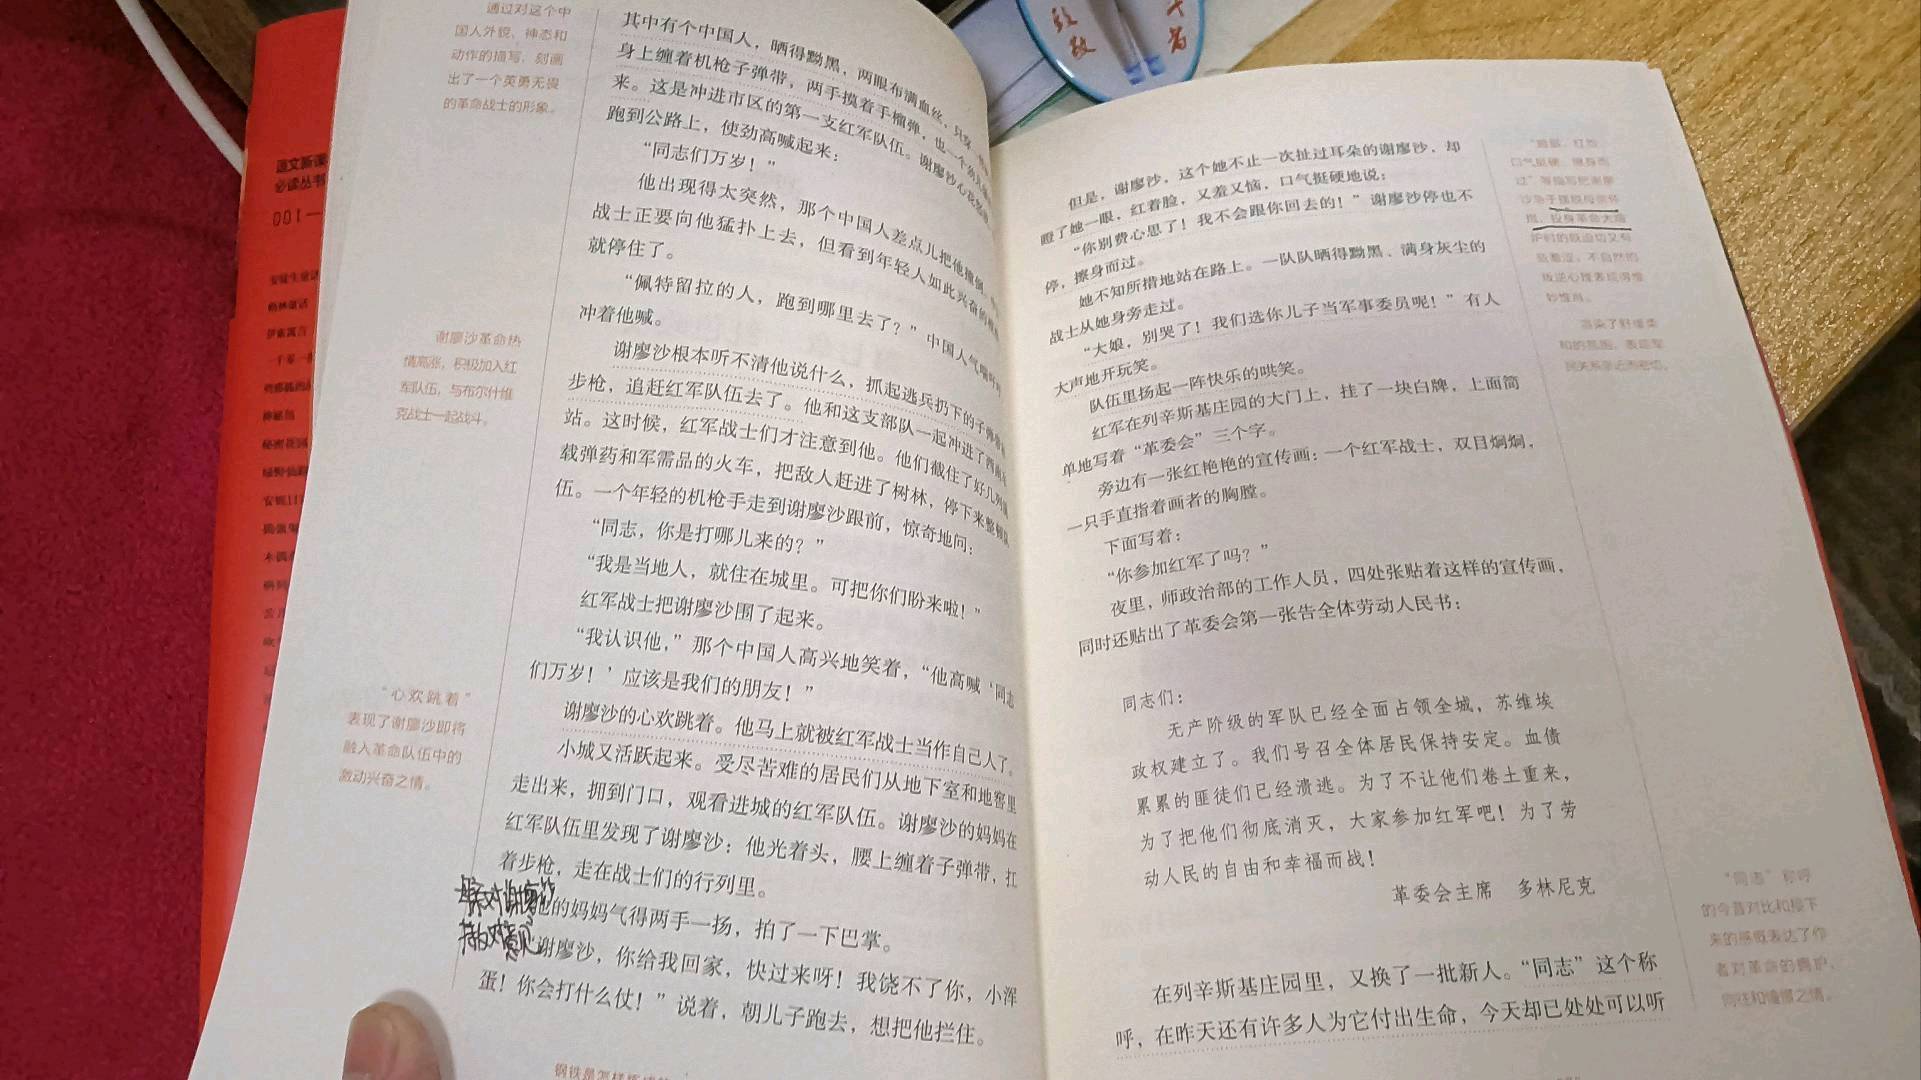 通过对这个中
国人外貌、神态和
动作的描写，刻画
出了一个英勇无畏
的革命战士的形象。
其中有个中国人，晒得黝黑，两眼布满血丝，只穿
身上缠着机枪子弹带，两手摸着手榴弹，也一个劲儿
来。这是冲进市区的第一支红军队伍。谢廖沙心花怒放
跑到公路上，使劲高喊起来：
“同志们万岁！”
他出现得太突然，那个中国人差点儿把他撞倒。
战士正要向他猛扑上去，但看到年轻人如此兴奋的
就停住了。
“佩特留拉的人，跑到哪里去了？”中国人气喘吁吁
冲着他喊。
谢廖沙革命热
情高涨，积极加入红
军队伍，与布尔什维
克战士一起战斗。
谢廖沙根本听不清他说什么，抓起逃兵扔下的子弹带和
步枪，追赶红军队伍去了。他和这支部队一起冲进了西南车
站。这时候，红军战士们才注意到他。他们截住了好几列满
载弹药和军需品的火车，把敌人赶进了树林，停下来整顿队
伍。一个年轻的机枪手走到谢廖沙跟前，惊奇地问：
“同志，你是打哪儿来的？”
“我是当地人，就住在城里。可把你们盼来啦！”
红军战士把谢廖沙围了起来。
“我认识他，”那个中国人高兴地笑着，“他高喊‘同志
们万岁！’应该是我们的朋友！”
“心欢跳着”
表现了谢廖沙即将
融入革命队伍中的
激动兴奋之情。
谢廖沙的心欢跳着。他马上就被红军战士当作自己人了。
小城又活跃起来。受尽苦难的居民们从地下室和地窖里
走出来，拥到门口，观看进城的红军队伍。谢廖沙的妈妈在
红军队伍里发现了谢廖沙：他光着头，腰上缠着子弹带，扛
着步枪，走在战士们的行列里。
母亲对谢廖沙
的妈妈气得两手一扬，拍了一下巴掌。
“谢廖沙，你给我回家，快过来呀！我饶不了你，小浑
蛋！你会打什么仗！”说着，朝儿子跑去，想把他拦住。
但是，谢廖沙，这个她不止一次扯过耳朵的谢廖沙，却
瞪了她一眼，红着脸，又羞又恼，口气挺硬地说：
“你别费心思了！我不会跟你回去的！”谢廖沙停也不
停，擦身而过。
她不知所措地站在路上。一队队晒得黝黑、满身灰尘的
战士从她身旁走过。
“大娘，别哭了！我们选你儿子当军事委员呢！”有人
大声地开玩笑。
队伍里扬起一阵快乐的哄笑。
红军在列辛斯基庄园的大门上，挂了一块白牌，上面简
单地写着“革委会”三个字。
旁边有一张红艳艳的宣传画：一个红军战士，双目炯炯，
一只手直指着画者的胸膛。
下面写着：
“你参加红军了吗？”
夜里，师政治部的工作人员，四处张贴着这样的宣传画，
同时还贴出了革委会第一张告全体劳动人民书：
同志们：
无产阶级的军队已经全面占领全城，苏维埃
政权建立了。我们号召全体居民保持安定。血债
累累的匪徒们已经溃逃。为了不让他们卷土重来，
为了把他们彻底消灭，大家参加红军吧！为了劳
动人民的自由和幸福而战！
革委会主席 多林尼克
“同志”称呼
的今昔对比和接下
来的感慨表达了作
者对革命的拥护、
向往和憧憬之情。
在列辛斯基庄园里，又换了一批新人。“同志”这个称
呼，在昨天还有许多人为它付出生命，今天却已处处可以听
语文新课
必读丛书
安徒生童话
格林童话
伊索寓言